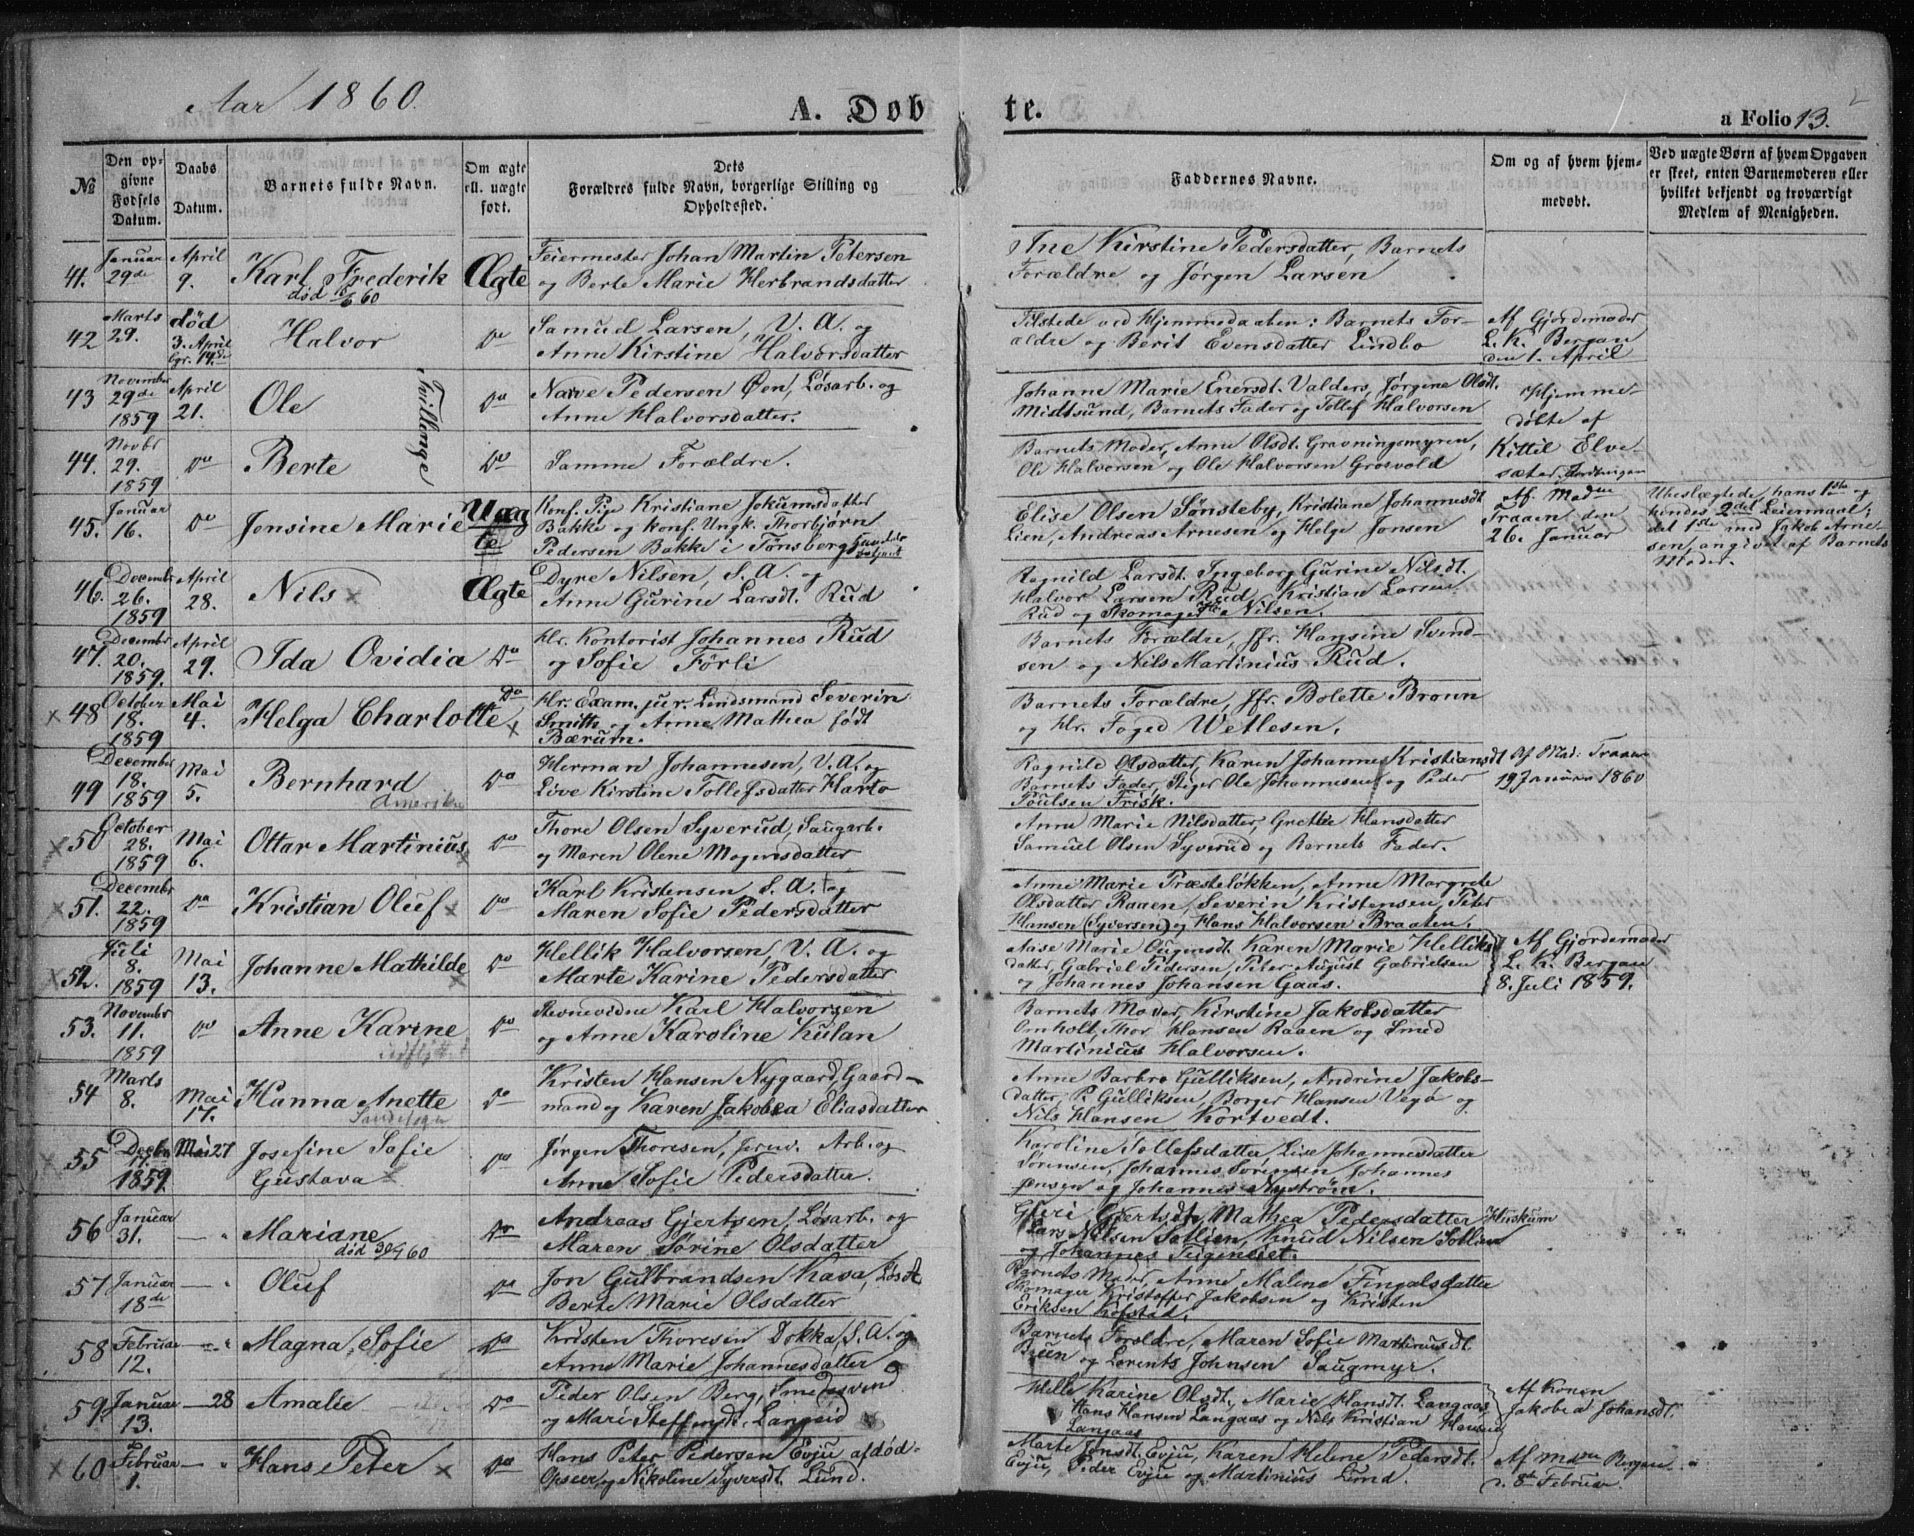 Aar 1860.
A. Døbte.
a Folio 13.
№
Den opgivne Fødsels Datum.
Daabs Datum.
Barnets fulde Navn.
Om ægte ell. uægte født.
Dets Forældres fulde Navn, borgerlige Stilling og Opholdssted.
Faddernes Navne.
Om og af hvem hjemmedøbt.
Ved uægte Børn af hvem Opgaven er skeet, enten Barnemoderen eller hvilket bekjendt og troværdigt Medlem af Menigheden.
41. Januar 29de April 9. Karl Frederik Ægte
død 16/6 60
Feiermester Johan Martin Petersen
og Berte Marie Herbrandsdatter
Ine Kirstine Pedersdatter, Barnets
Forældre og Jørgen Larsen
42 Marts 29. død 3. April bgr. 14de Halvor Do
Samuel Larsen, V. A. og
Anne Kirstine Halvorsdatter
Tilstede ved Hjemmedaaben: Barnets For-
ældre og Berit Evensdatter Lindbo
Af Gjordemoder
L. K. Bergan
den 1. April
43 November 29de 1859 April 21. Ole Do
Tvillinge
Narve Pedersen Øen, Løsarb. og
Anne Halvorsdatter.
Johanne Marie Enersdt. Valders, Jørgene Olsdt.
Midtsund, Barnets Fader og Tollef Halvorsen
Hjemme-
døbte af
Kittil Elve-
sæter,
44. Novbr 29. 1859 Do Berte Do
Samme Forældre.
Barnets Moder, Anne Olsdt. Gravningsmyren,
Ole Halvorsen og Ole Halvorsen Grosvold
45. Januar 16. Do Jensine Marie Uægte
Konf. Pige Kristiane Jokumsdatter
Bakke og konf. Ungk. Thorbjørn
Pedersen Bakke i Tønsberg
Elise Olsen Sønsteby, Kristiane Johannesdt
Lien, Andreas Arnesen og Helge Jensen
Af Madme
Traaen den
26. Januar
Ubeslægtede, hans 1ste og
hendes 2det Leiermaal;
det 1ste med Jakob Arne-
sen, angivet af Barnets
Moder.
46. Decembr 26. 1859 April 28. Nils x Ægte
Dyre Nilsen, S. A. og
Anne Gurine Larsdt. Rud
Ragnild Larsdt. Ingeborg Gurine Nilsdt.
Halvor Larsen Rud, Kristian Larsen
Rud og Skomager Nilsen.
47. Decembr 20. 1859. April 29. Ida Ovidia Do
Hr. Kontorist Johannes Rud
og Sofie Førli
Barnets Forældre, Jfr. Hansine Svend-
sen og Nils Martinius Rud.
x 48 October 18. 1859 Mai 4. Helga Charlotte x Do
Hr. Exam. jur. Lendsmand Severin
Smitt og Anne Mathea født
Bærum.
Barnets Forældre, Jfr. Bolette Bronn
og Hr. Foged Wetlesen.
49 December 18. 1859 Mai 5. Bernhard Do
Herman Johannesen, V. A. og
Live Kirstine Tollefsdatter Harto
Ragnild Olsdatter, Karen Johanne Kristiansdt
Barnets Fader, Stiger Ole Johannesen og Peder
Poulsen Frisk.
Af Mad: Traaen
19 Januar 1860
x 50 October 28. 1859 Mai 6. Ottar Martinius x Do
Thore Olsen Syverud, Saugarb.
og Maren Olene Mogensdatter
Anne Marie Nilsdatter, Grethe Hansdatter
Samuel Olsen Syverud og Barnets Fader.
x 51. Decembr 22. 1859 Do Kristian Oluf x Do
Karl Kristensen, S. A. og
Maren Sofie Pedersdatter
Anne Marie Præsteløkken, Anne Margrete
Olsdatter Raaen, Severin Kristensen, Peter
Hansen (Syversen) og Hans Halvorsen Braaten.
x 52. Juli 8. 1859 Mai 13. Johanne Mathilde x Do
Hellik Halvorsen, V. A. og
Marte Karine Pedersdatter
Aase Marie Ougensdt. Karen Marie Helliks-
datter, Gabriel Pedersen, Peter August Gabrielsen
og Johannes Johansen Gaas.
Af Gjordemoder
L. K. Bergan
8. Juli 1859.
53. November 11. 1859 Do Anne Karine Do
Stevnevidne Karl Halvorsen
og Anne Karoline Kulan
Barnets Moder, Kirstine Jakobsdatter
Omholt, Thor Hansen Raaen og Smed
Martinius Halvorsen.
54 Marts 8. Mai 17. Hanna Anette Do
Kristen Hansen Nygaard, Gaard-
mand og Karen Jakobea Eliasdatter
Anne Barbro Gulliksen, Andrine Jakobs-
datter, P. Gulliksen, Borger Hansen Vegó og
Nils Hansen Kortvedt.
x 55 Decbr 17. 1859. Mai 27 Josefine Sofie
Gustava x Do
Jørgen Thoresen, Jernv. Arb. og
Anne Sofie Pedersdatter.
Karoline Tollefsdatter, Lise Johannesdatter
Sørensen, Johannes Sørensen, Johannes
Jensen og Johannes Nystrøm.
56 Januar 31. — " Mariane Do
død 30/4 60
Andreas Gjertsen, Løsarb. og
Maren Sørine Olsdatter
Gjertsdt. Mathea Pedersdatter
Lars Nilsen Sollien, Knud Nilsen Sollien
og Johannes Teigeneiet.
57 Januar 18de — " Oluf Do
Jon Gulbrandsen Kasa, Løsa.
Berte Marie Olsdatter
Barnets Moder, Anne Malene Fingalsdatter
Skomager Kristoffer Jakobsen og Kristen
Eriksen Kofstad.
58 Februar 12. — " Magna Sofie Do
Kristen Thoresen Dokka, S. A. og
Anne Marie Johannesdatter
Barnets Forældre, Maren Sofie Martiniusdt.
Bjen og Lorents Johnsen Saugmyr.
59. Januar 13. — 28 Amalie Do
Peder Olsen Berg, Smedesvend
og Mari Steffensdt. Langeid
Helle Karine Olsdt., Marie Hansdt. Langaas,
Hans Hansen Langaas og Nils Kristian Hansen
Langaas
Af Konen
Jakobea Johansdt.
x 60 Februar 1. — " Hans Peter x Do
Hans Peter Pedersen Evju afdød
Opseer, og Nikoline Syversdt. Lund.
Marte Jensdt. Evju, Karen Helene Pedersdt.
Evju, Peder Evju og Martinius Lund.
Af Madme Bergan
8de Februar.